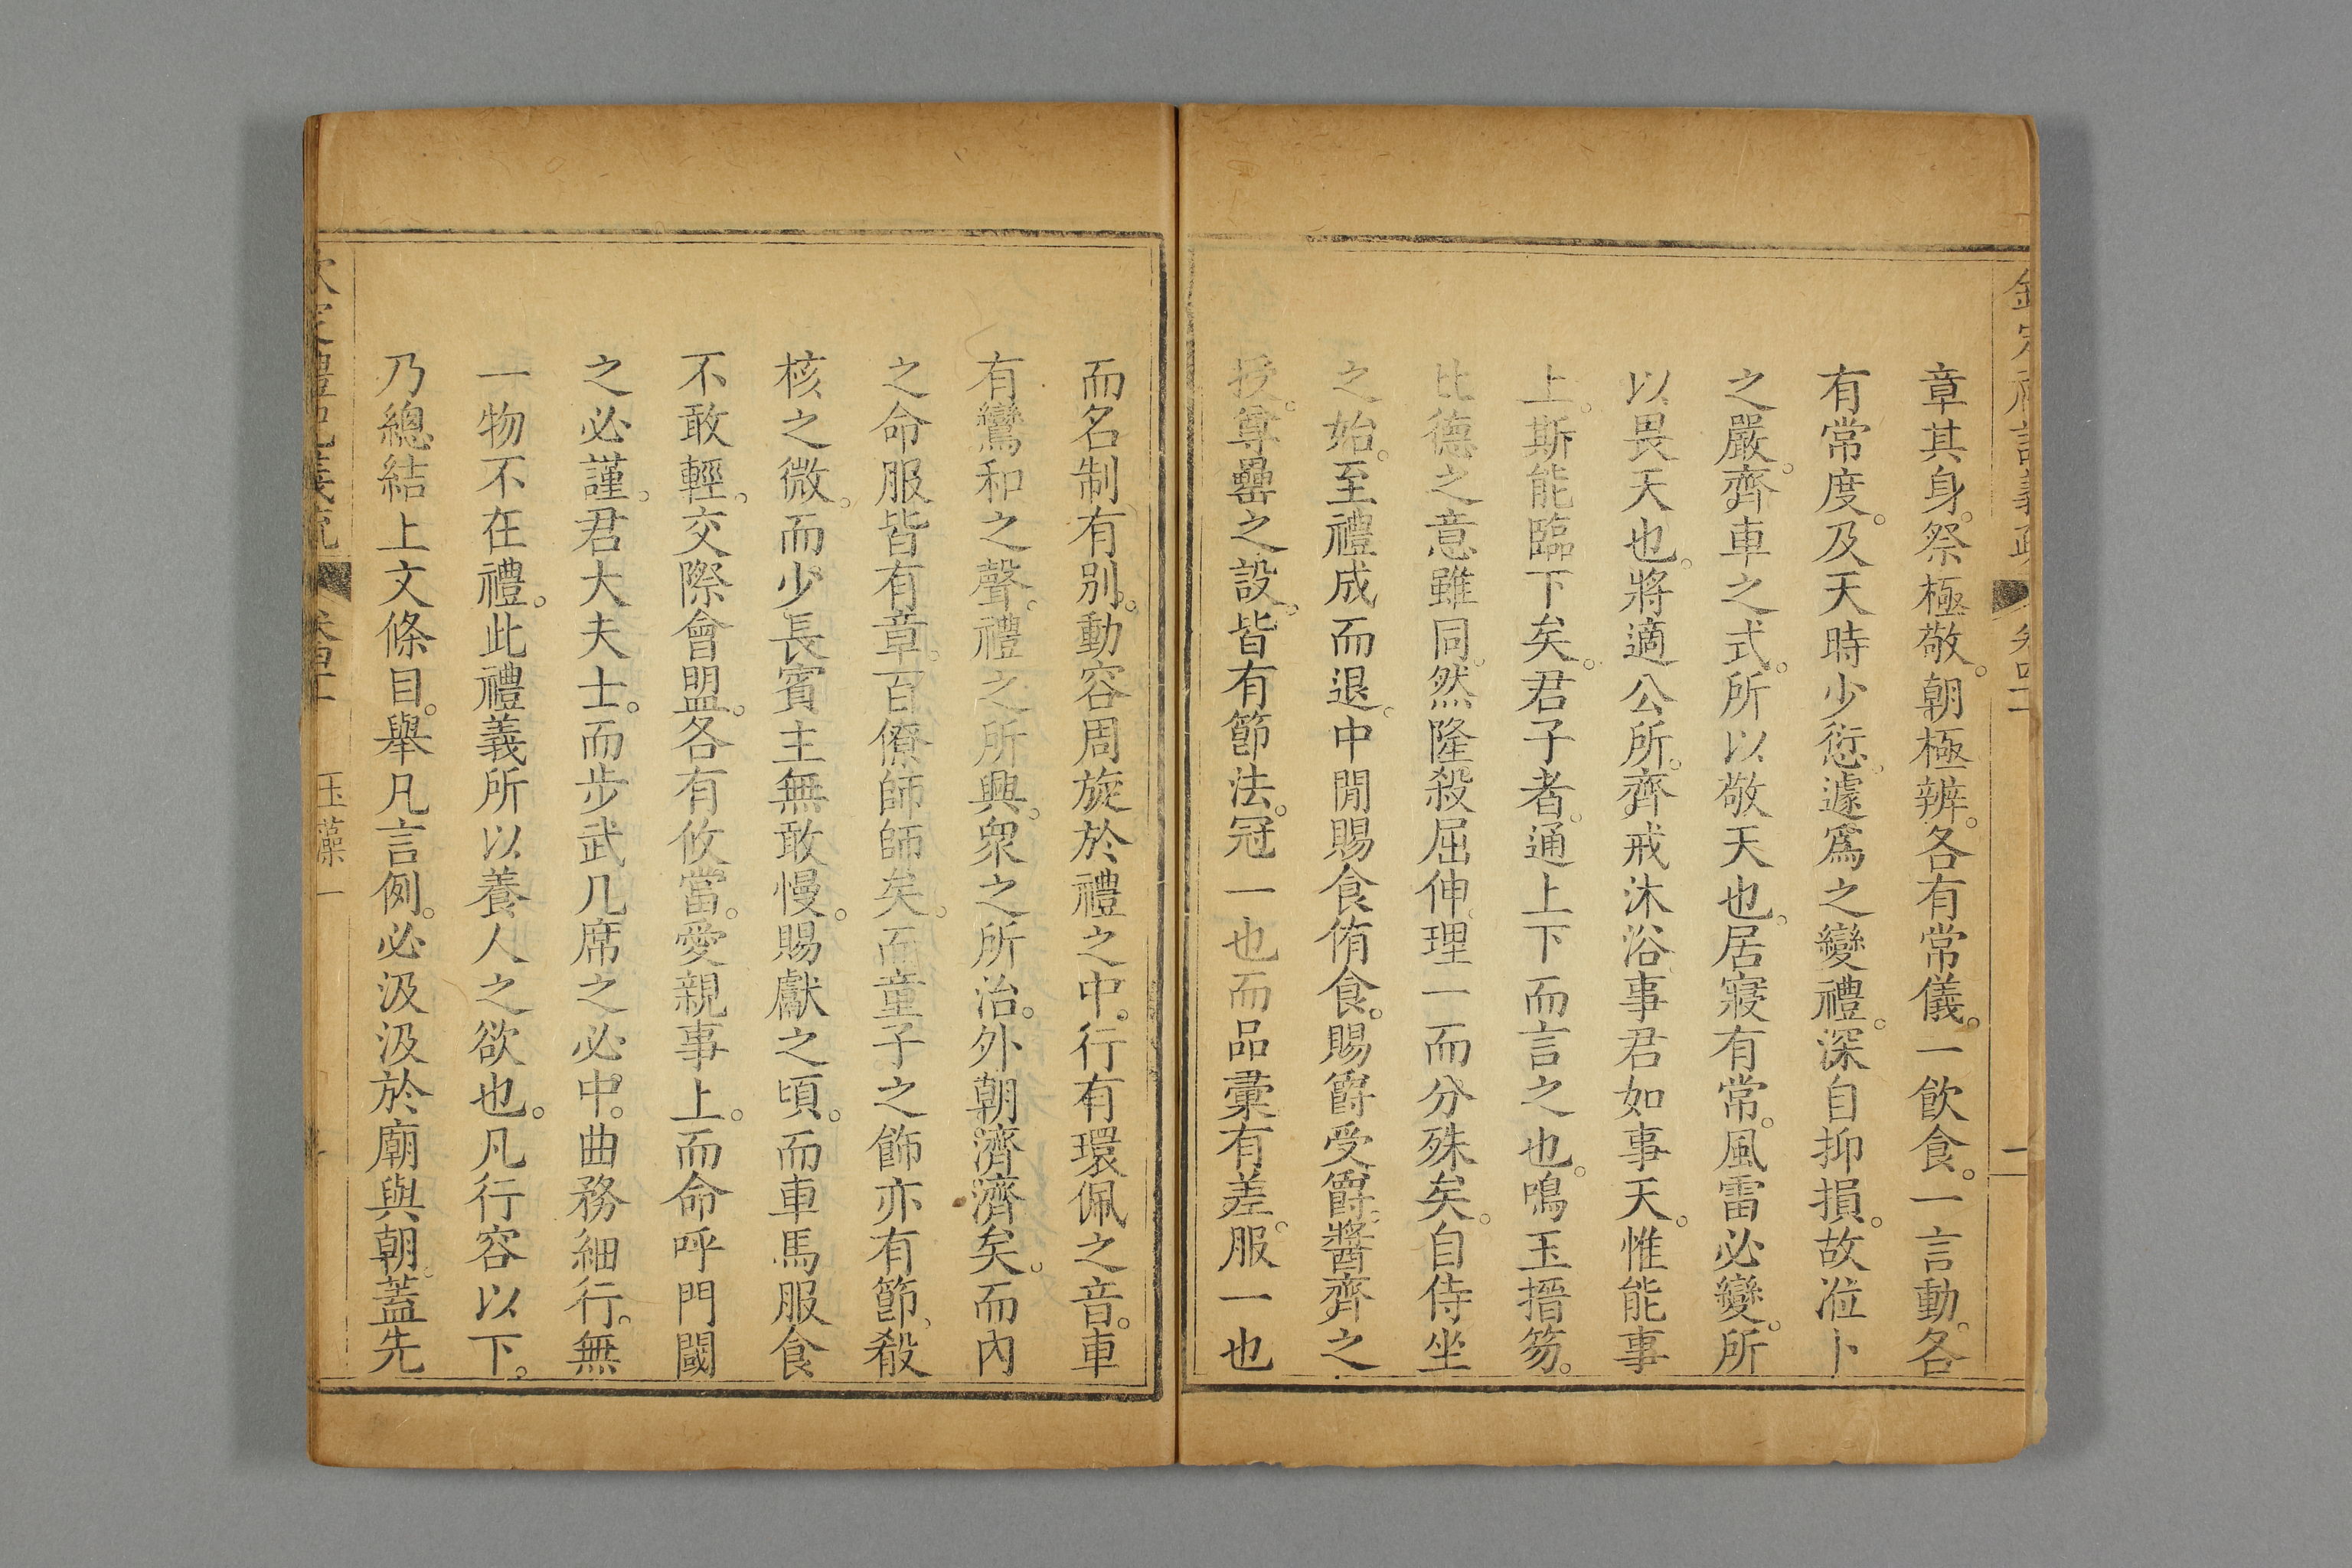 章其身。祭極敬。朝極辨。各有常儀。一飲食。一言動。各
有常度。及天時少愆。遽爲之變禮。深自抑損。故涖卜
之嚴。齊車之式。所以敬天也。居寢有常。風雷必變。所
以畏天也。將適公所。齊戒沐浴。事君如事天。惟能事
上。斯能臨下矣。君子者。通上下而言之也。鳴玉搢笏。
比德之意雖同。然隆殺屈伸。理一而分殊矣。自侍坐
之始。至禮成而退。中間賜食侑食。賜爵受爵。醬齊之
授。尊罍之設。皆有節法。冠一也而品彙有差。服一也
而名制有別。動容周旋於禮之中。行有環佩之音。車
有鸞和之聲。禮之所興。衆之所治。外朝濟濟矣。而內
之命服皆有章。百僚師師矣。而童子之飾亦有節。殽
核之微。而少長賓主無敢慢。賜獻之頃。而車馬服食
不敢輕。交際會盟。各有攸當。愛親事上。而命呼門闑
之必謹。君大夫士。而步武几席之必中。曲務細行。無
一物不在禮。此禮義所以養人之欲也。凡行容以下。
乃總結上文條目。舉凡言例。必汲汲於廟與朝。蓋先
欽定禮記義疏 卷四十 玉藻一